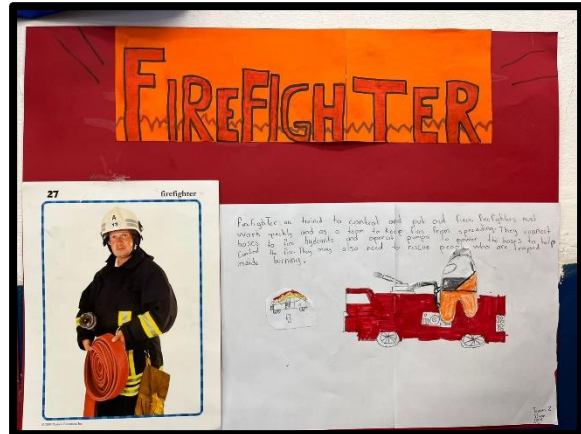 FIREFIGHTER
27 firefighter
A
Firefighter are trained to control and put out fires. Firefighters must
work quickly and as a team to keep fires from spreading. They connect
hoses to fire hydrants and operate pumps to power the hoses to help
the fire. They may also need to rescue people who are trapped
inside burning.